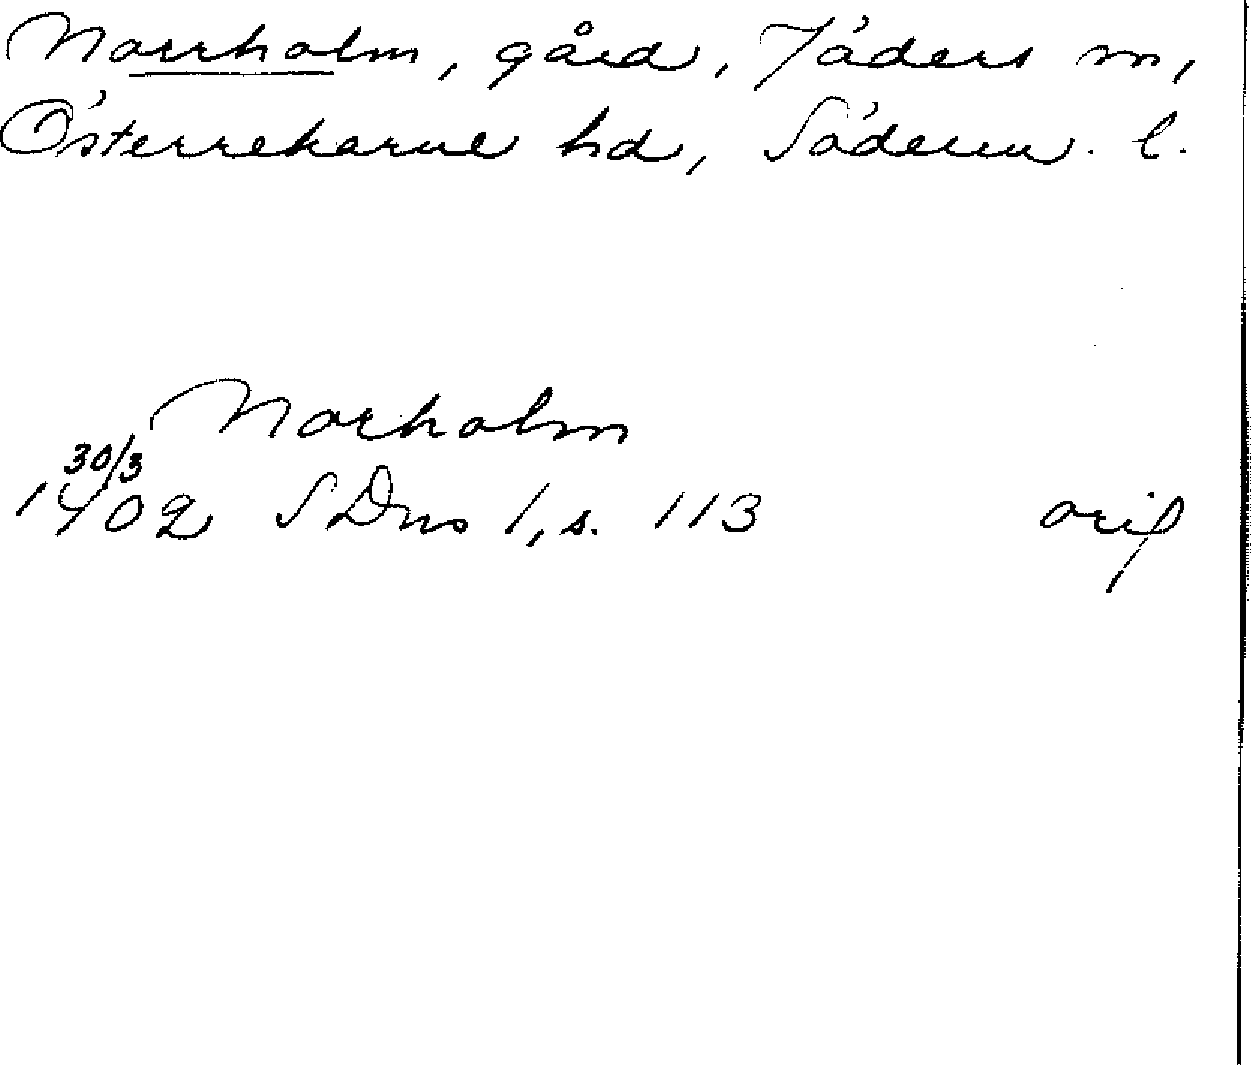 Norrholm, gård, Jäders sn,
Österrekarne hd, Söderm. l.
Norholm
30/3
1402 SDns 1, s. 113 orig